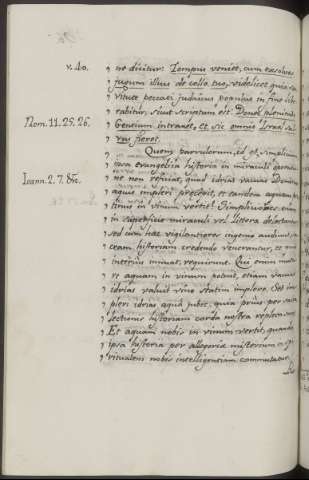 v. 40.
„ ne dicitur: Tempus veniet, cum excolves
„ jugum illius de collo tuo, videlicet quia a ser
„ vitute peccati judaicus populus in fine libe
„ rabitur, sicut scriptum est: Donec plenitudo
Rom. 11. 25. 26.
„ Gentium intraret, et sic omnis Israel sal
„ vus fieret.
„ Quem parvulorum, id est, simplicium
„ more evangelica historia in miraculi operatio
Joann. 2. 7. &c.
„ ne non reficiat, quod idrias vacuas Dominus
„ aquis impleri praecepit, et eandem aquam pro
„ tinus in vinum vertit? Simpliciores enim
„ in superficie miraculi vel littera delectantur,
„ sed cum haec vigilantiores ingenio audiunt,
„ ceam historiam credendo venerantur, et quid
„ interius innuat, requirunt. Qui enim mutare
„ re aquam in vinum potuit, etiam vacuas
„ idrias valuit vino statim implere. Sed im
„ pleri idrias aqua jubet, quia prius per sacrae
„ lectionis historiam corda nostra replenda sunt.
„ Et aquam nobis in vinum vertit, quando
„ ipsa historia per allegoriae mysterium in spi
„ ritualem nobis intelligentiam commutatur.